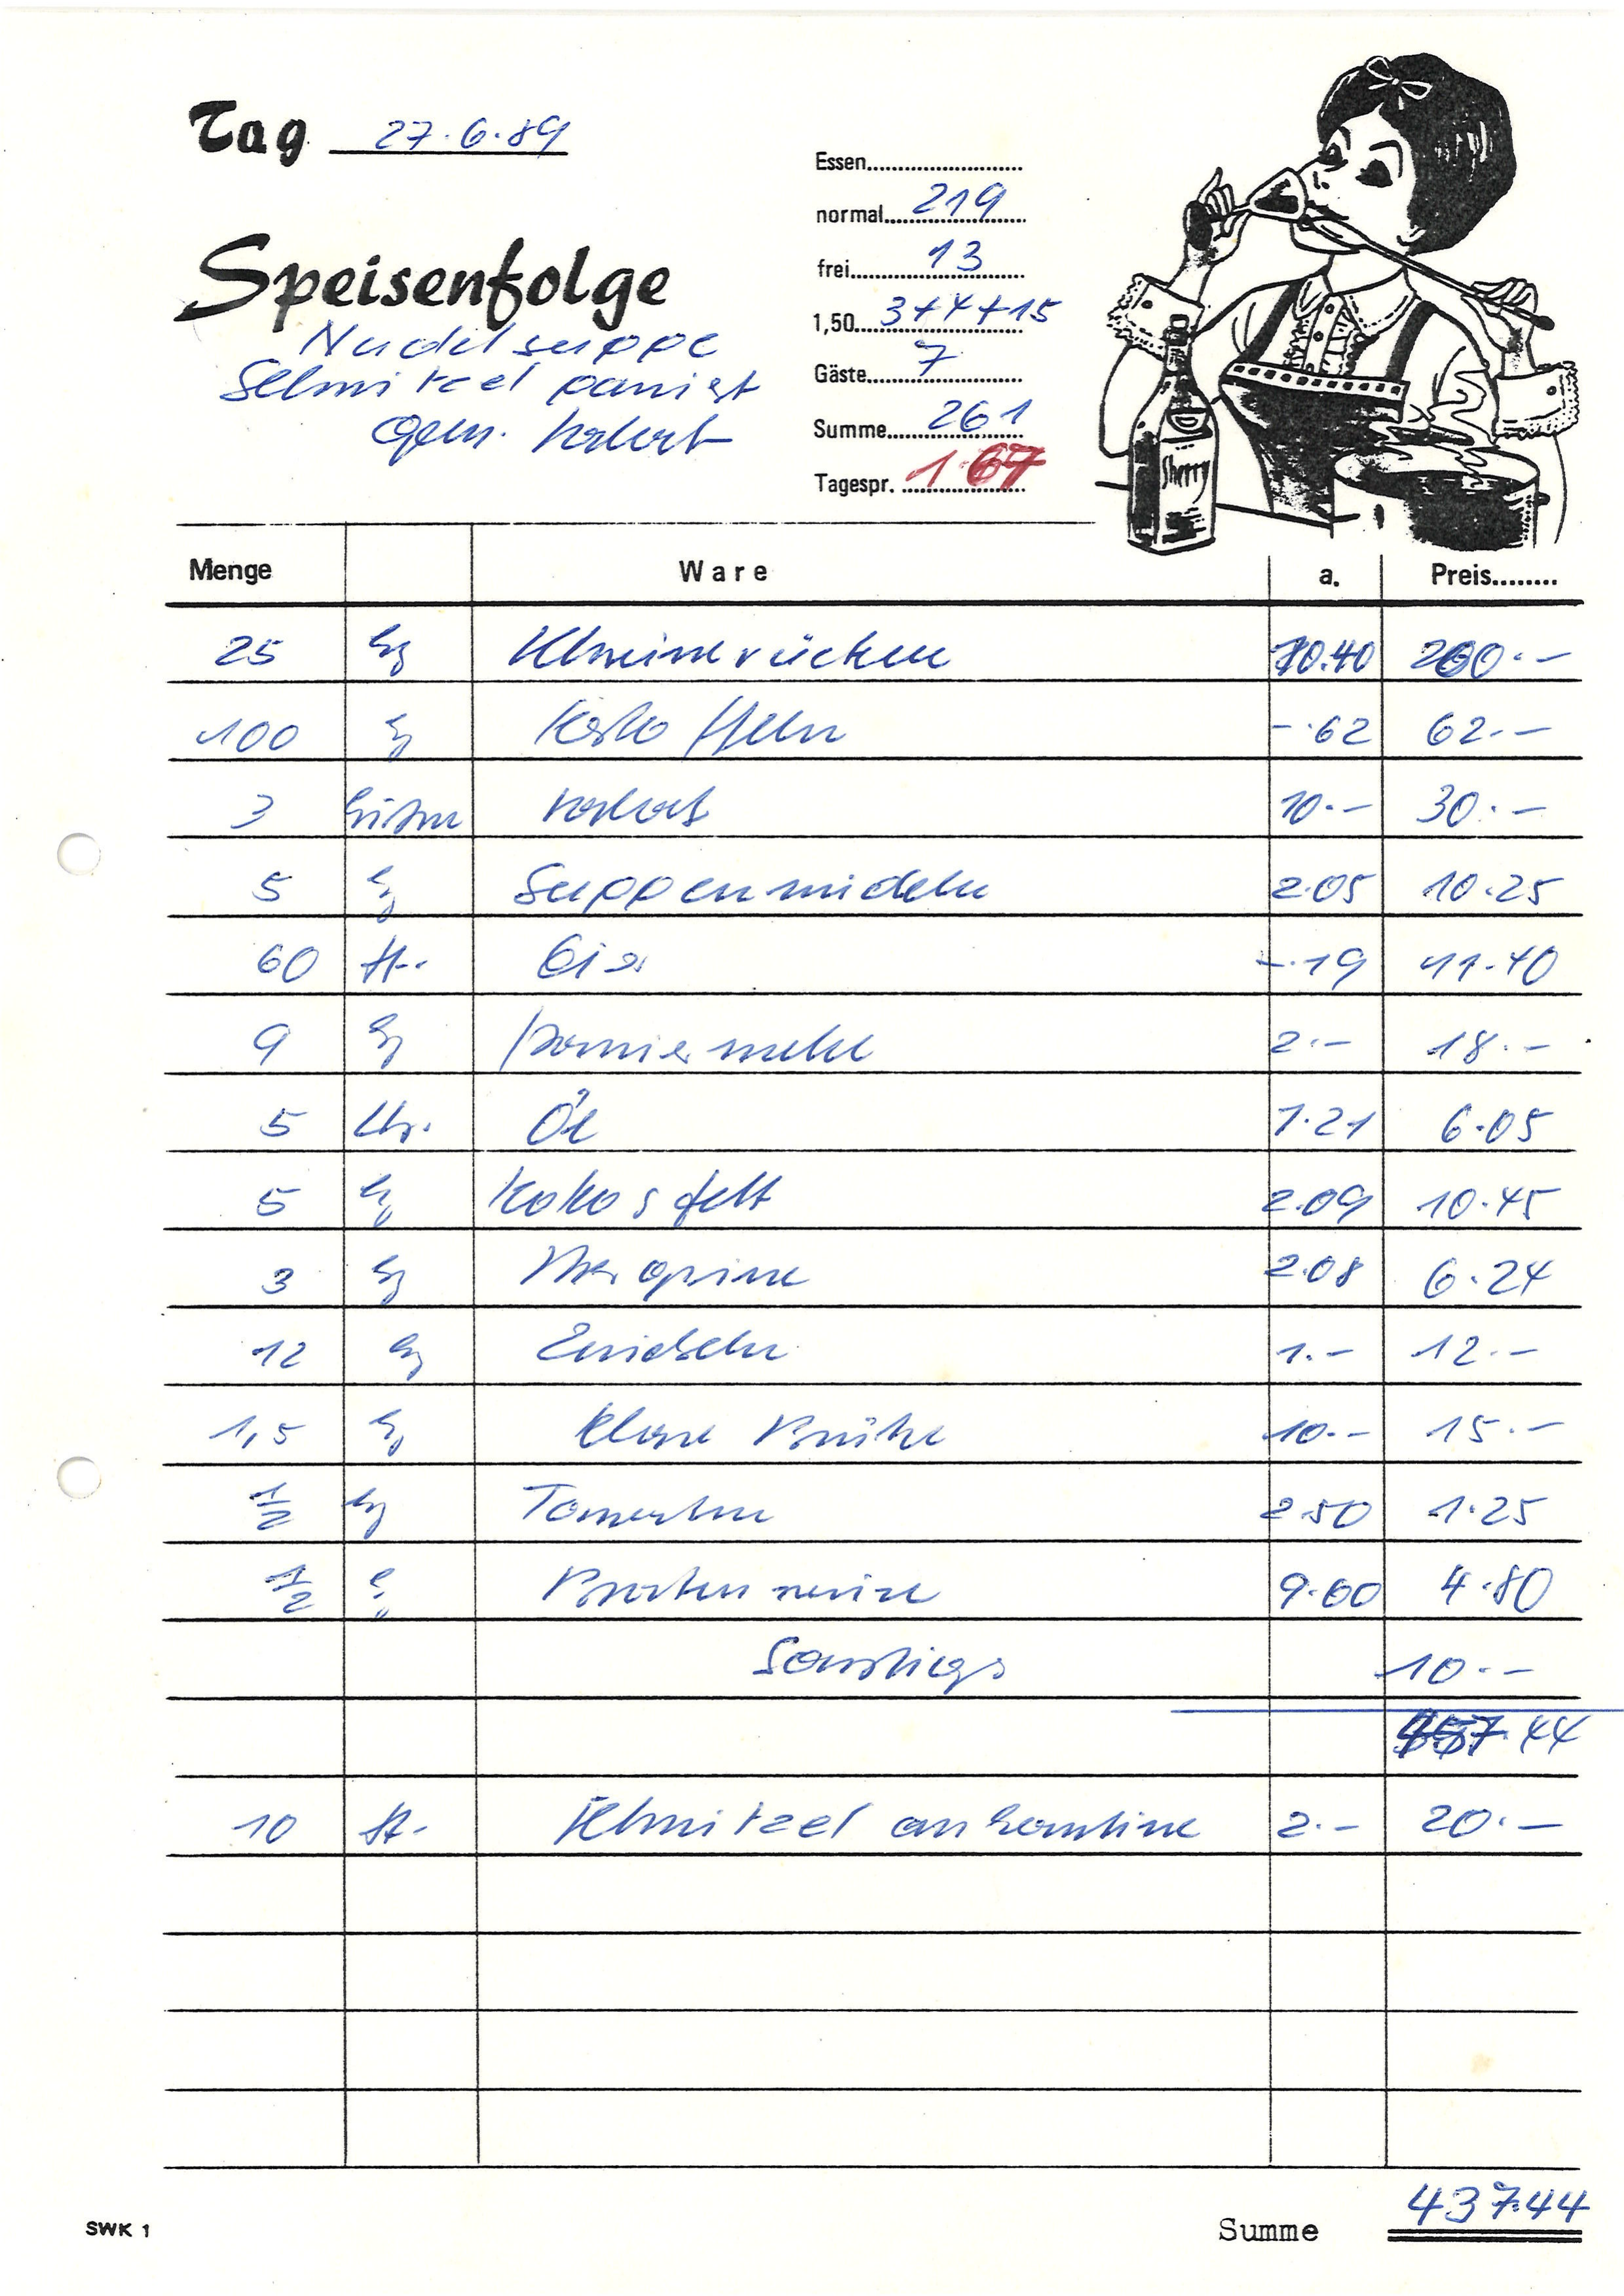 Tag 27.6.89
Speisenfolge
Nudelsuppe
Schnitzel paniert
Gem. Salat
Essen
normal 219
frei 13
1,50 3+4+15
Gäste 7
Summe 261
Tagespr. 1.67
Sherry
Menge Ware a. Preis
25 kg Schweinerücken 10.40 260.-
100 kg Kartoffeln -.62 62.-
3 Kisten Salat 10.- 30.-
5 kg Suppennudeln 2.05 10.25
60 St. Eier -.19 11.40
9 kg Paniermehl 2.- 18.-
5 Ltr. Öl 1.21 6.05
5 kg Kokosfett 2.09 10.45
3 kg Margarine 2.08 6.24
12 kg Zwiebeln 1.- 12.-
1,5 kg klare Brühe 10.- 15.-
1/2 kg Tomaten 2.50 1.25
1/2 kg Braten 9.60 4.80
Sonstiges 10.-
457.44
10 St. Schnitzel an Kantine 2.- 20.-
SWK 1
Summe 437.44